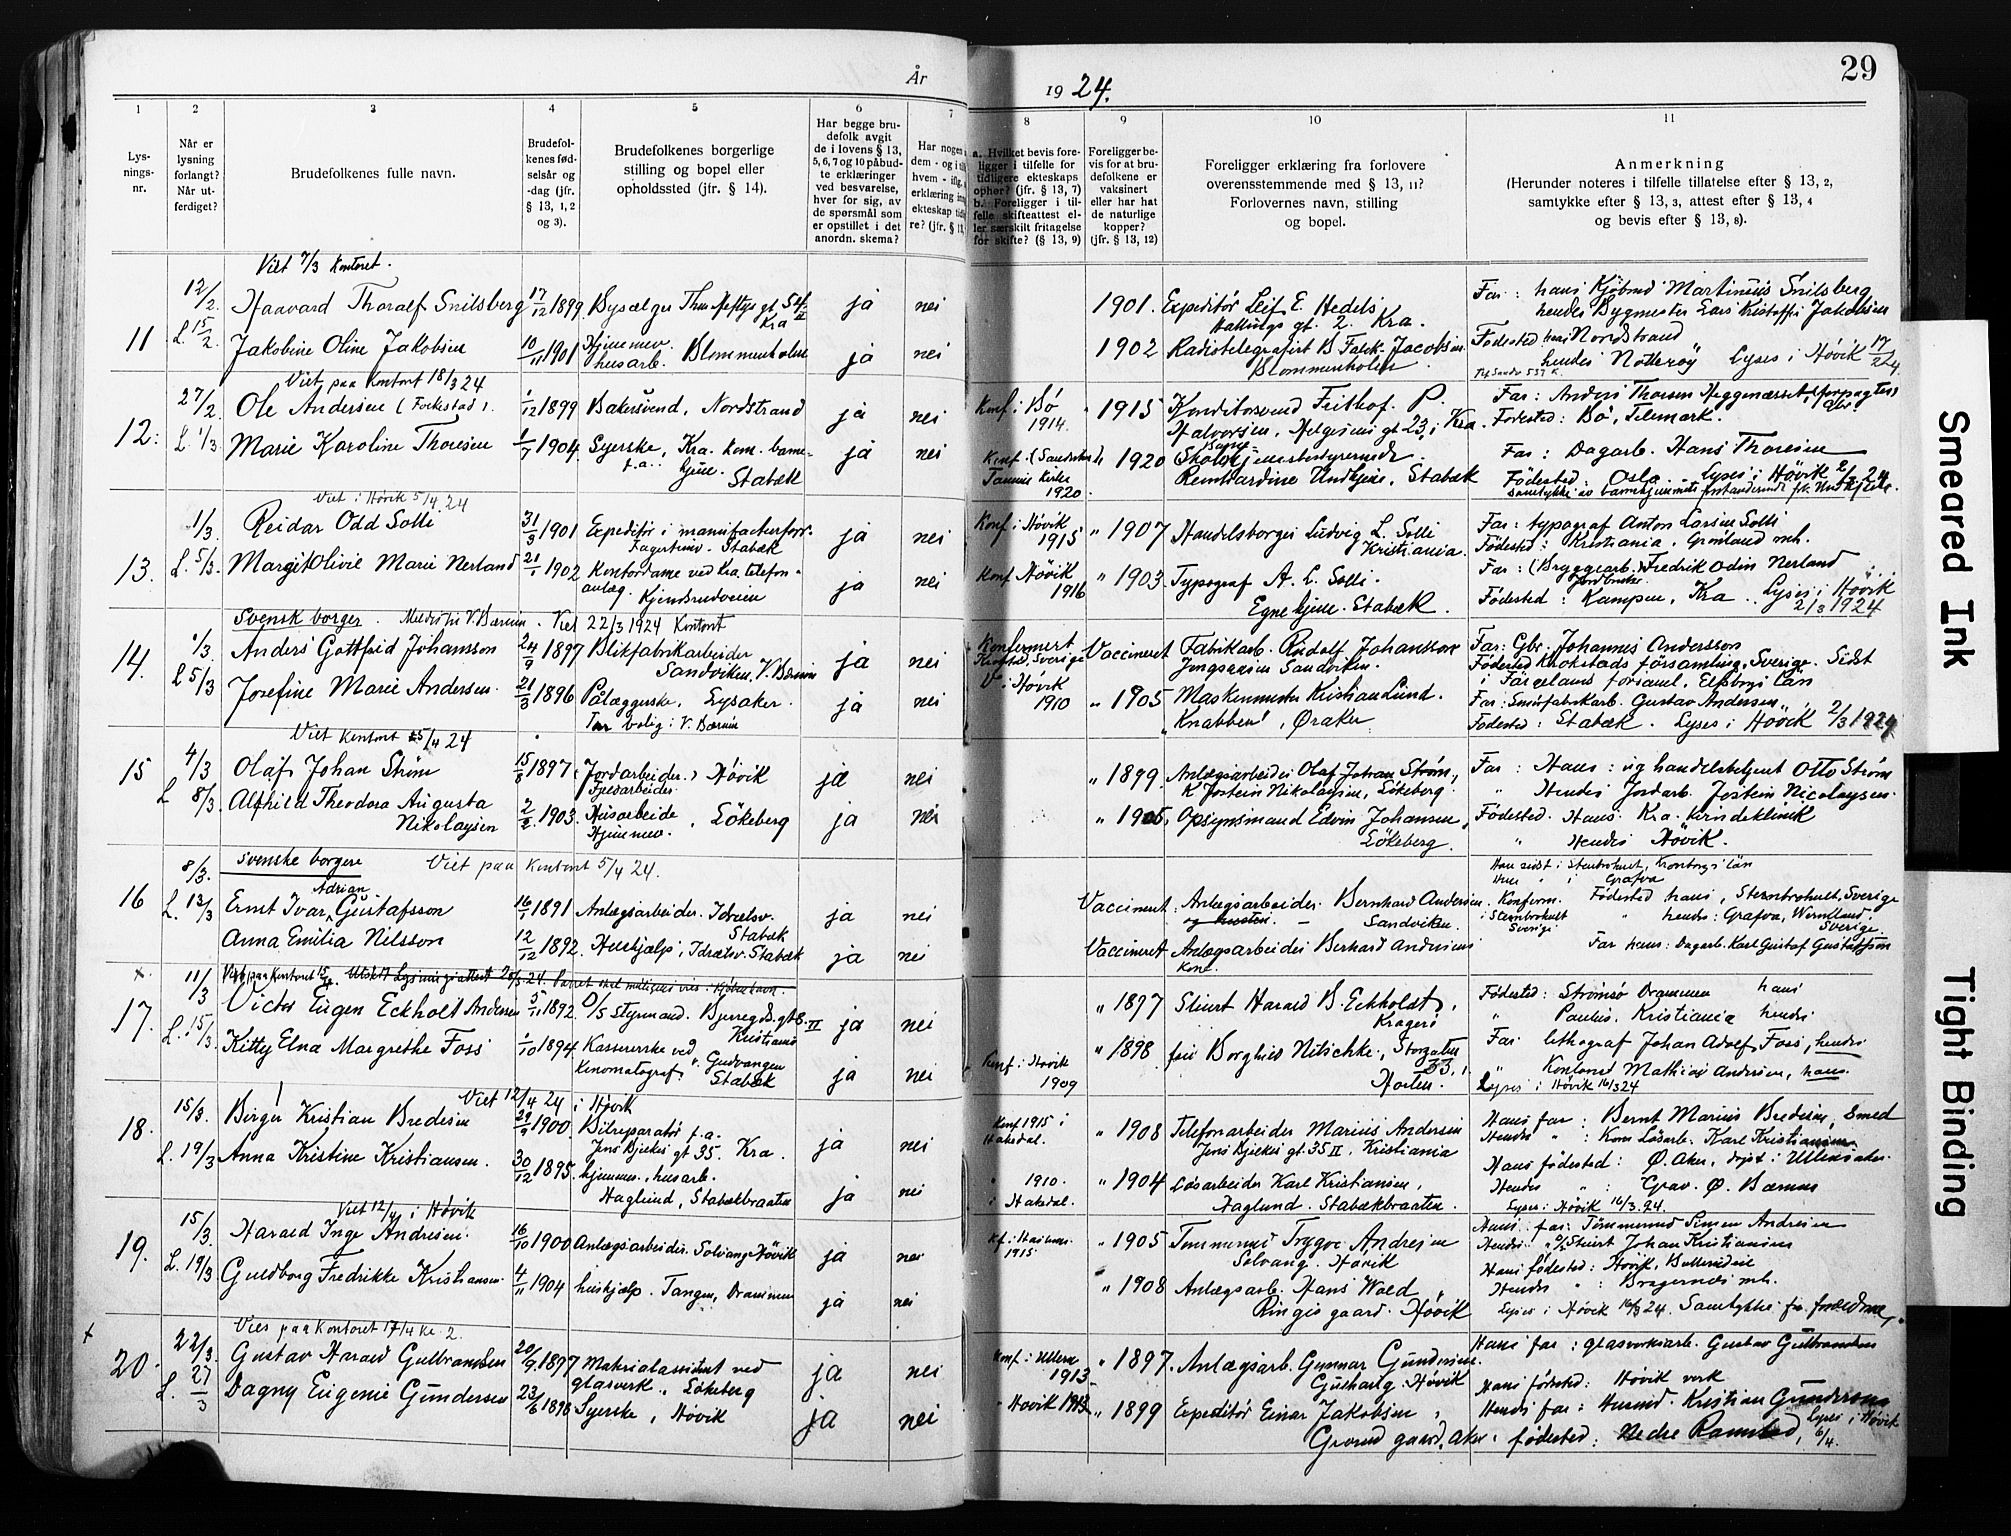 År
19 24.
29
1
2
3
4
5
6
7
8
9
10
11
Lys-
nings-
nr.
Når er
lysning
forlangt?
Når ut-
ferdiget?
Brudefolkenes fulle navn.
Brudefol-
kenes fød-
selsår og
-dag (jfr.
§ 13, 1, 2
og 3).
Brudefolkenes borgerlige
stilling og bopel eller
opholdssted (jfr. § 14).
Har begge bru-
defolk avgit
de i lovens § 13,
5, 6, 7 og 10 påbud-
te erklæringer
ved besvarelse,
hver for sig, av
de spørsmål som
er opstillet i det
anordn. skema?
Har nogen
dem - og i
hvem - iflg.
erklæring
ekteskap
re? (jfr. §
a. Hvilket bevis fore-
ligger i tilfelle for
tidligere ekteskaps
ophør? (jfr. § 13, 7)
b. Foreligger i til-
felle skifteattest el-
ler særskilt fritagelse
for skifte? (§ 13, 9)
Foreligger be-
vis for at bru-
defolkene er
vaksinert
eller har hat
de naturlige
kopper?
(jfr. § 13, 12)
Foreligger erklæring fra forlovere
overensstemmende med § 13, 11?
Forlovernes navn, stilling
og bopel.
Anmerkning
(Herunder noteres i tilfelle tillatelse efter § 13, 2,
samtykke efter § 13, 3, attest efter § 13, 4
og bevis efter § 13, 8).
Viet 7/3 Kontoret.
11
12/2
L 15/2
Haavard Thoralf Snilsberg
17/12 1899
ja
nei
1901. Expeditør Leif E.
gt. 2. Kra.
Far: hans Martinius Snilsberg
hendes Bygmester Lars Jakobsen
Jakobine Oline Jakobsen
10/11 1901
husarb. Blommenholm
ja
nei
1902 Radiotelegrafist B Falck-Jacobsen
Blommenholm
Fødested hans Nordstrand
hendes Nøtterøy Lyses i Høvik 17/2 24
Viet paa Kontoret 18/3 24
12.
27/2
L. 1/3
Ole Andersen (Folkestad).
1/12 1899
Bakersvend, Nordstrand
ja
nei
Konf. i Bø
1914.
" 1915
Konditorsvend Frithof. P.
Halvorsen, Helgesens gt 23, i Kra.
Fødested: Bø, Telemark.
Marie Karoline Thoresen
1/7 1904
Syerske, Kra. kom. barne-
hjem.
Stabæk
ja
nei
1920.
1920
Undhjem, Stabæk
Far: Dagarb. Hans Thoresen
Fødested: Oslo. Lyses i Høvik 2/3 24
Viet i Høvik 5/4 24
13.
1/3
L. 5/3
Reidar Odd Solli
31/3 1901
Expeditør i manufakturforr.
Stabæk
ja
nei
Konf. i Høvik
1915
" 1907
Handelsborger Ludvig L. Solli
Kristiania.
Far: typograf Anton Larsen Solli
Fødested: Kristiania, Grønland mh.
Margit Olivie Marie Nerland
21/1 1902
Kontordame ved Kra. telefon-
anlæg.
ja
nei
Konf. Høvik
1916
" 1903
Typograf A. L. Solli.
Egne hjem. Stabæk.
Far: (Bryggearb.) Fredrik Odin Nerland
Fødested: Kampen, Kra. Lyses i Høvik
2/3 1924
Svensk borger. V. Bærum. Viet 22/3 1924 Kontoret
14.
1/3
L 5/3
Anders Gottfrid Johansson
24/9 1897
Blikfabrikarbeider
Sandviken. V. Bærum
ja
nei
Konfermert
Sverige
Vaccineret
Fabrikarb. Rudolf Johansson
Sandviken.
Far: Gbr. Johannes Andersson
Fødested Krokstads församling, Sverige. Sidst
i Färgelanda församl. Elfsborgs län
Josefine Marie Andersen.
21/3 1896
Pålæggerske, Lysaker.
bolig: V. Bærum
ja
nei
i Høvik
1910
" 1905
Maskinmester Kristian Lund.
"Knabben", Øraker
Far: Gustav Andersen
Fødested: Stabæk. Lyses i Høvik 2/3 1924
Viet Kontoret 5/4 24
15
4/3
L 8/3
Olaf Johan Strøm
15/8 1897
(Jordarbeider.) Høvik
Fjeldarbeider
ja
nei
" 1899
Anlægsarbeider Olaf Johan Strøm,
K Jostein Nikolaysen, Løkeberg
Far: Hans: handelsbetjent Otto Strøm
" Hendes Jordarb. Jostein Nicolaysen
Alfhild Theodora Augusta
Nikolaysen
2/2 1903
Husarbeide
Hjemmev. Løkeberg
ja
nei
" 1905
Opsynsmand Edvin Johansen,
Løkeberg.
Fødested. Hans. Kra. Kvindeklinik
" Hendes Høvik.
svenske borgere Viet paa Kontoret 5/4 24.
16
8/3.
L. 13/3
Adrian
Ernst Ivar Gustafsson
16/1 1891
Anlægsarbeider. Idrætsv.
Stabæk
ja
nei
Vaccineret
Anlægsarbeider Bernhard Andersen
Sandviken.
Konferm.
Sverige
Fødested hans, Stenbrohult, Sverige
" hendes: Grafva, Wermland,
Sverige
Anna Emilia Nilsson
12/12 1892
Hushjælp, Idrætsv. Stabæk
ja
nei
Vaccineret
Anlægsarbeider Bernhard Andersens
Kone.
Far hans: Dagarb. Karl Gustaf Gustafsson
×
17.
11/3
L. 15/3
Victor Eugen Eckholt Andersen
5/11 1892
D/S Styrmand. Bjerregds. gt 8 II
Kristiania
ja
nei
" 1897
Stuert Harald B. Eckholdt,
Kragerø
Fødested: Strømsø Drammen hans
" Paulus. Kristiania hendes
Kitty Elna Margrethe Foss
1/10 1894
Kassererske ved
Kinomatograf, Gudvangen
Stabæk
ja
nei
Konf. i Høvik
1909
" 1898
frk Borghild Nitschke, Storgaten
33,
Horten.
Far lithograf Johan Adolf Foss, hendes
" Kontorist Mathias Andersen, hans
Lyses i Høvik 16/3 24
Viet 12/4 24 i Høvik
18.
15/3.
L. 19/3
Birger Kristian Bredesen
29/9 1900.
Bilreparatør
Jens Bjelkes gt 35. Kra.
ja
nei
Konf 1915 i
Hakedal.
" 1908
Telefonarbeider Marius Andersen
Jens Bjelkes gt. 35 II, Kristiania
Hans far: Bernt Marius Bredesen, Smed
Hendes ": Løsarb. Karl Kristiansen
Anna Kristine Kristiansen.
30/12 1895.
hjemmev., husarb.
Haglund, Stabækbraaten
ja
nei
" 1910.
i Hakedal.
" 1904
Løsarbeider Karl Kristiansen,
Haglund. Stabækbraaten.
Hans fødested: Ø. Aker, døpt i Ullensaker.
Hendes ": Grav. Ø. Bærum
Lyses i Høvik 16/3.24.
Viet 12/4 i Høvik
19.
15/3.
L. 19/3
Harald Inge Andresen.
16/10 1900
Anlægsarbeider. Solvang Høvik
ja
nei
1915
" 1905
Tømmermd Trygve Andresen
Solvang. Høvik
Hans far: Tømmermd Simen Andresen
Hendes " Stuert Johan Kristiansen
Guldborg Fredrikke Kristiansen
4/11 1904
hushjælp. Tangen, Drammen
ja
nei
" 1908
Anlægsarb. Hans Wold,
Ringis gaard. Høvik
Hans fødested: Høvik,
Hendes ": Bragernes mh.
Lyses i Høvik 16/3 24. Samtykke fra forældrene
Vies paa Kontoret 17/4 kl 2.
20.
22/3.
L. 27/3
Gustav Harald Gulbrandsen
20/9 1897
Materialassistent ved
glasverk, Løkeberg
ja
nei
Konf. i Ullern
1913
" 1897.
Anlægsarb. Gunnar Gundersen.
Høvik
Hans far: glasverksarb. Gustav Gulbrandsen
Hans fødested: Høvik verk
Dagny Eugenie Gundersen
23/6 1898
Syerske, Høvik
ja
nei
" Høvik 1913
" 1899
Expeditør Einar Jakobsen,
Grorud gaard, Aker.
Hendes far: Kristian Gundersen
fødested: Nedre Ramstad, Lyses i Høvik
6/4.
Smeared Ink
Tight Binding